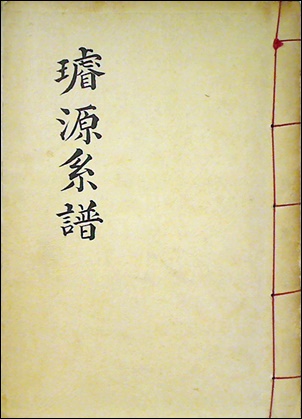 璿源系譜